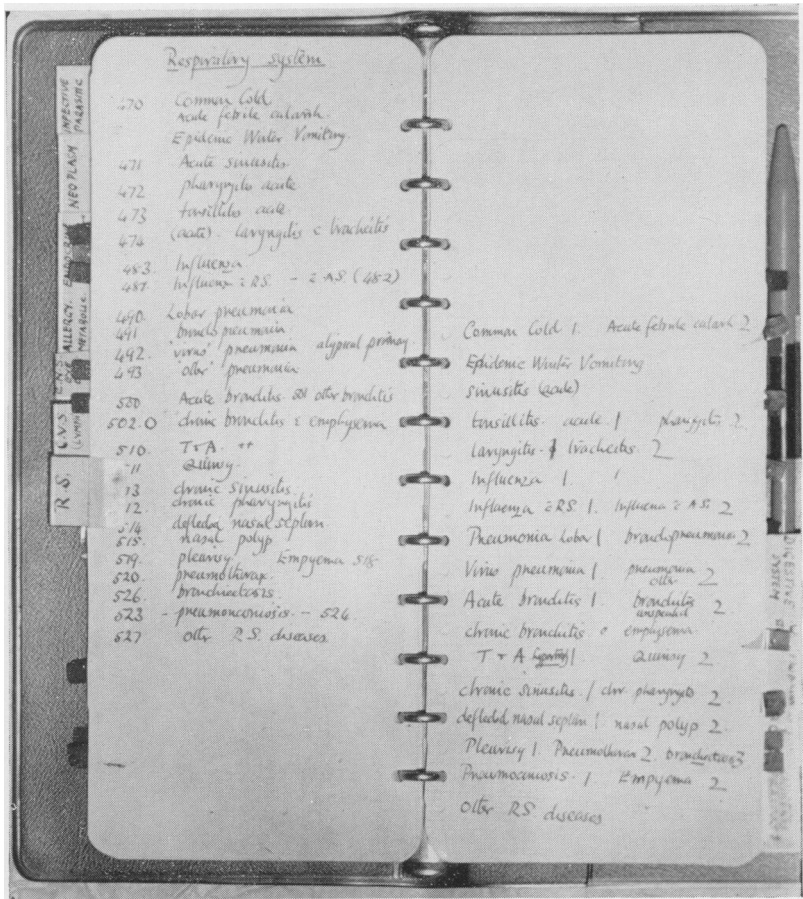 Respiratory system
470 Common Cold
Acute febrile catarrh.
Epidemic Winter Vomiting.
471 Acute sinusitis.
472 pharyngitis acute
473 tonsillitis acute.
474 (acute). laryngitis c tracheitis
483. Influenza
481. Influenza c RS. - c A.S. (482)
490. Lobar pneumonia
491 bronchopneumonia
492. 'virus' pneumonia atypical primary.
493 'other' pneumonia
500 Acute bronchitis other bronchitis
502.0 chronic bronchitis c emphysema
510. T+A. ++
11 Quinsy.
13 chronic sinusitis.
12. chronic pharyngitis
514 deflected nasal septum
515. nasal polyp
519. pleurisy Empyema 518
520. pneumothorax.
526. bronchiectasis.
523 - pneumonconiosis. - 524.
527 other R.S. diseases
Common Cold 1. Acute febrile catarrh 2
Epidemic Winter Vomiting
sinusitis (acute)
tonsillitis. acute 1 pharyngitis 2
laryngitis. 1 tracheitis. 2
Influenza 1
Influenza c RS 1. Influenza c A.S. 2
Pneumonia Lobar 1 bronchopneumonia 2
Virus pneumonia 1. pneumonia other 2
Acute bronchitis 1. bronchitis unspecified 2
chronic bronchitis c emphysema
T + A 1 Quinsy 2
chronic sinusitis. 1 chr. pharyngitis 2.
deflected nasal septum 1. nasal polyp 2.
Pleurisy 1. Pneumothorax 2. bronchiectasis 3
Pneumoconiosis. 1. Empyema 2
Other RS. diseases
INFECTIVE PARASITIC
NEOPLASM
ALLERGY. ENDOCRINE
METABOLIC
C.N.S
EYE
C.V.S
LYMPH
R.S.
DIGESTIVE SYSTEM